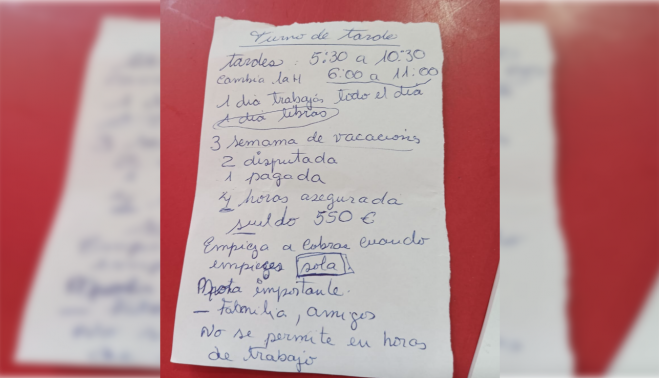 Turno de tarde
tardes : 5:30 a 10:30
cambia la H 6:00 a 11:00
1 dia trabajas todo el dia
1 dia libras
3 semama de vacacions
2 disputada
1 pagada
4 horas asegurada
sueldo 550 €
Empieza a cobrar cuando
empieces sola
importante.
- Familia, amigos
No se permite en horas
de trabajo